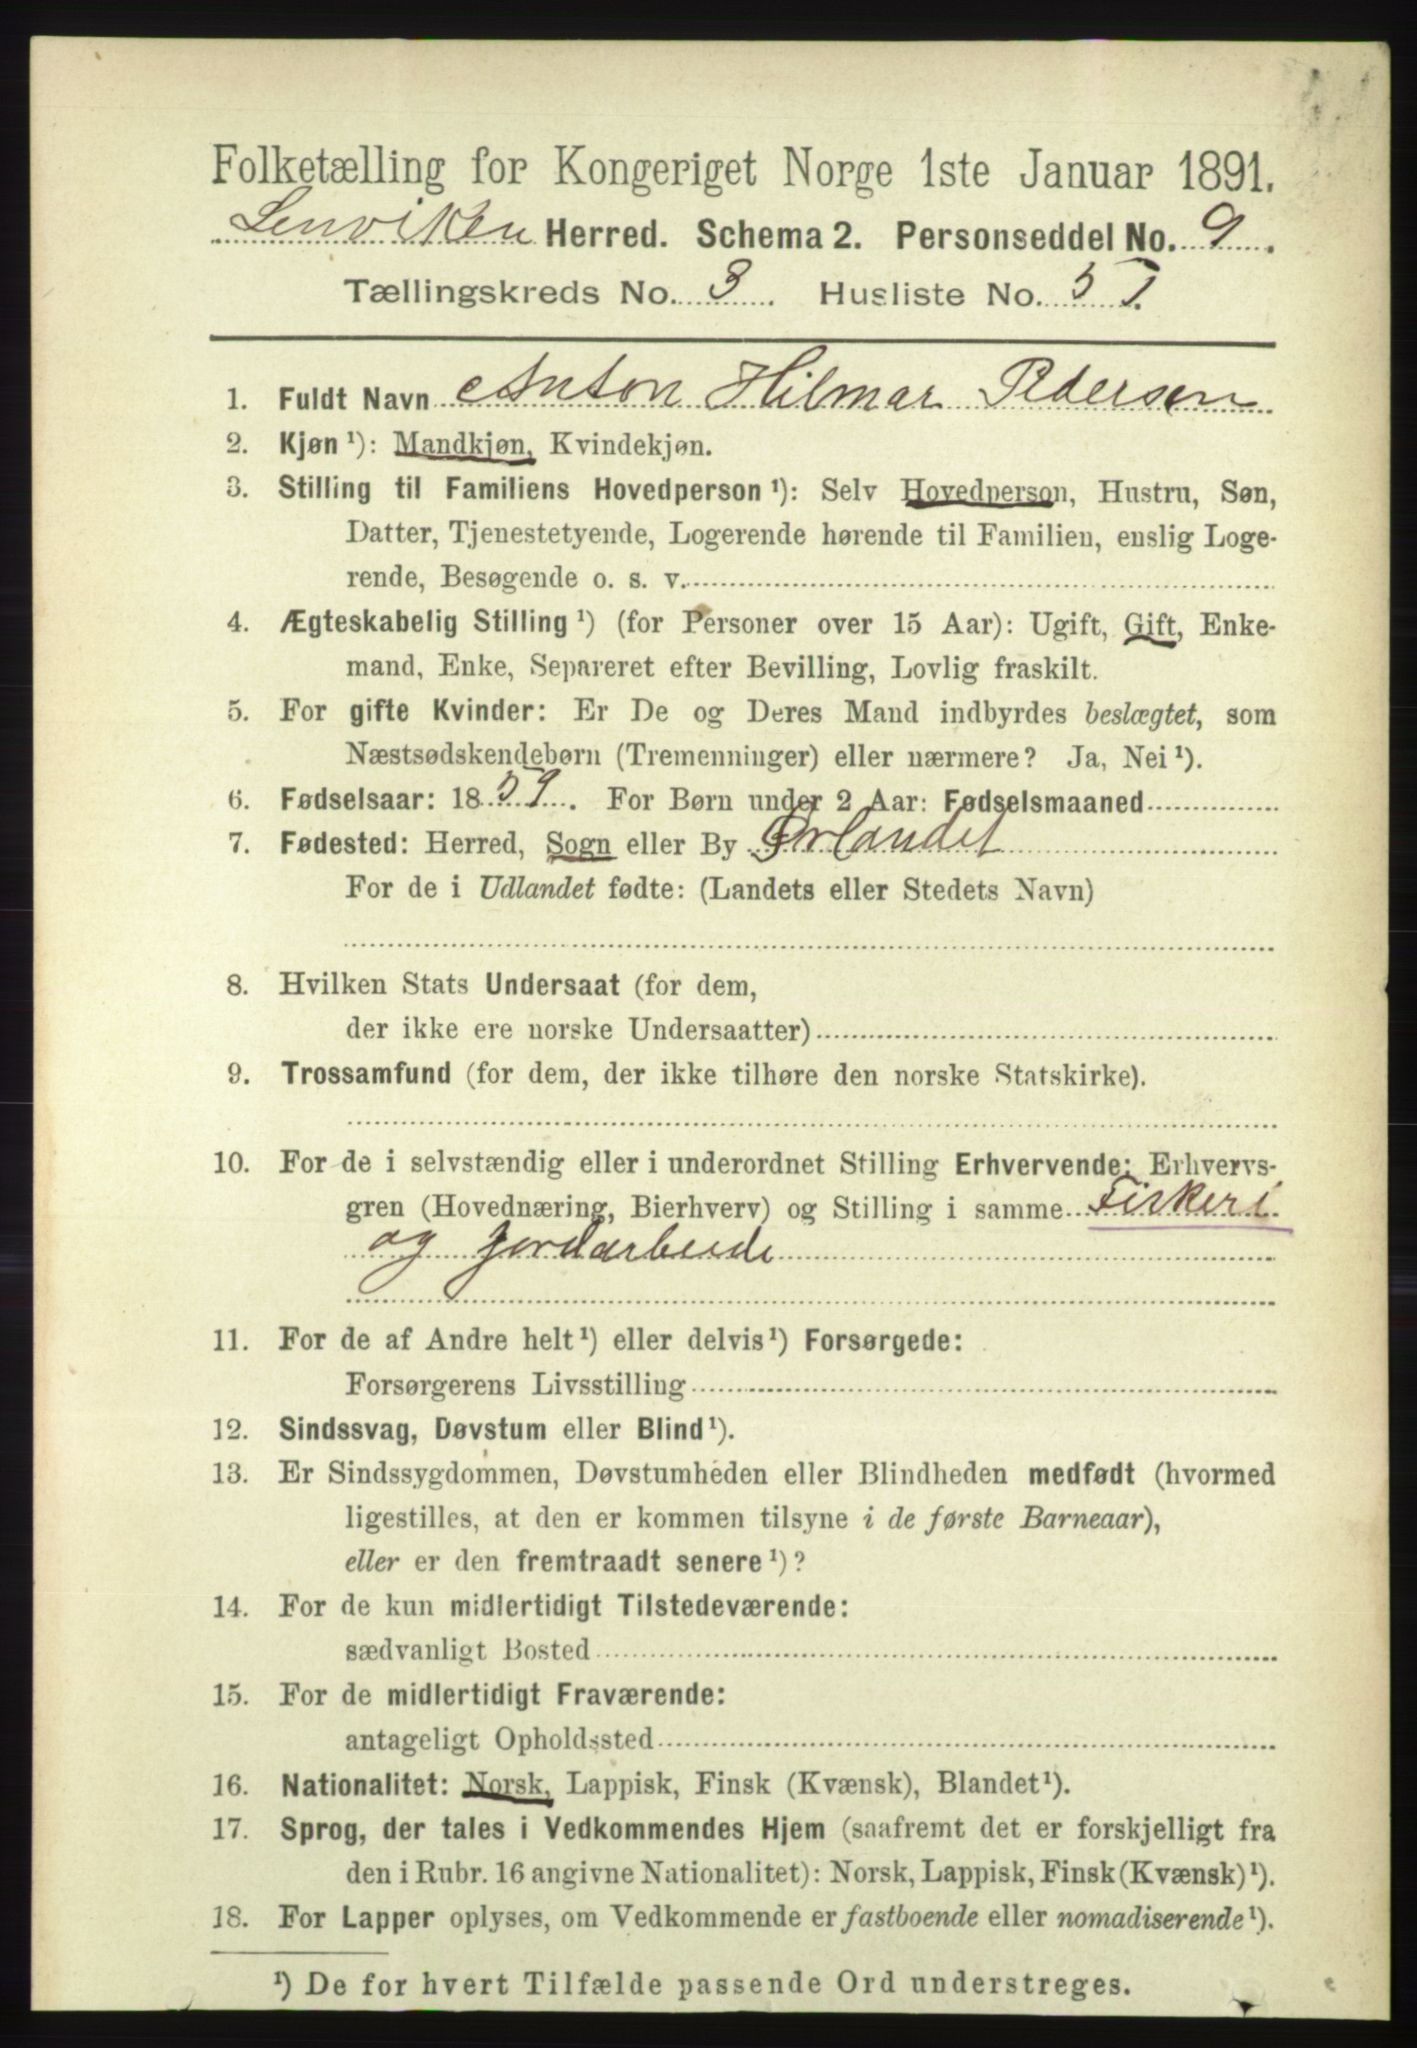 Folketælling for Kongeriget Norge 1ste Januar 1891.
Lenviken Herred. Schema 2. Personseddel No. 9.
Tællingskreds No. 3. Husliste No. 57.
1. Fuldt Navn Anton Hilmar Pedersen
2. Kjøn ¹): Mandkjøn, Kvindekjøn.
3. Stilling til Familiens Hovedperson ¹): Selv Hovedperson, Hustru, Søn,
Datter, Tjenestetyende, Logerende hørende til Familien, enslig Loge-
rende, Besøgende o. s. v.
4. Ægteskabelig Stilling ¹) (for Personer over 15 Aar): Ugift, Gift, Enke-
mand, Enke, Separeret efter Bevilling, Lovlig fraskilt.
5. For gifte Kvinder: Er De og Deres Mand indbyrdes beslægtet, som
Næstsødskendebørn (Tremenninger) eller nærmere? Ja, Nei ¹).
6. Fødselsaar: 1859. For Børn under 2 Aar: Fødselsmaaned
7. Fødested: Herred, Sogn eller By Ørlandet
For de i Udlandet fødte: (Landets eller Stedets Navn)
8. Hvilken Stats Undersaat (for dem,
der ikke ere norske Undersaatter)
9. Trossamfund (for dem, der ikke tilhøre den norske Statskirke).
10. For de i selvstændig eller i underordnet Stilling Erhvervende: Erhvervs-
gren (Hovednæring, Bierhverv) og Stilling i samme Fiskeri
og Jordarbeide
11. For de af Andre helt ¹) eller delvis ¹) Forsørgede:
Forsørgerens Livsstilling
12. Sindssvag, Døvstum eller Blind ¹).
13. Er Sindssygdommen, Døvstumheden eller Blindheden medfødt (hvormed
ligestilles, at den er kommen tilsyne i de første Barneaar),
eller er den fremtraadt senere ¹)?
14. For de kun midlertidigt Tilstedeværende:
sædvanligt Bosted
15. For de midlertidigt Fraværende:
antageligt Opholdssted
16. Nationalitet: Norsk, Lappisk, Finsk (Kvænsk), Blandet ¹).
17. Sprog, der tales i Vedkommendes Hjem (saafremt det er forskjelligt fra
den i Rubr. 16 angivne Nationalitet): Norsk, Lappisk, Finsk (Kvænsk) ¹).
18. For Lapper oplyses, om Vedkommende er fastboende eller nomadiserende ¹).
¹) De for hvert Tilfælde passende Ord understreges.